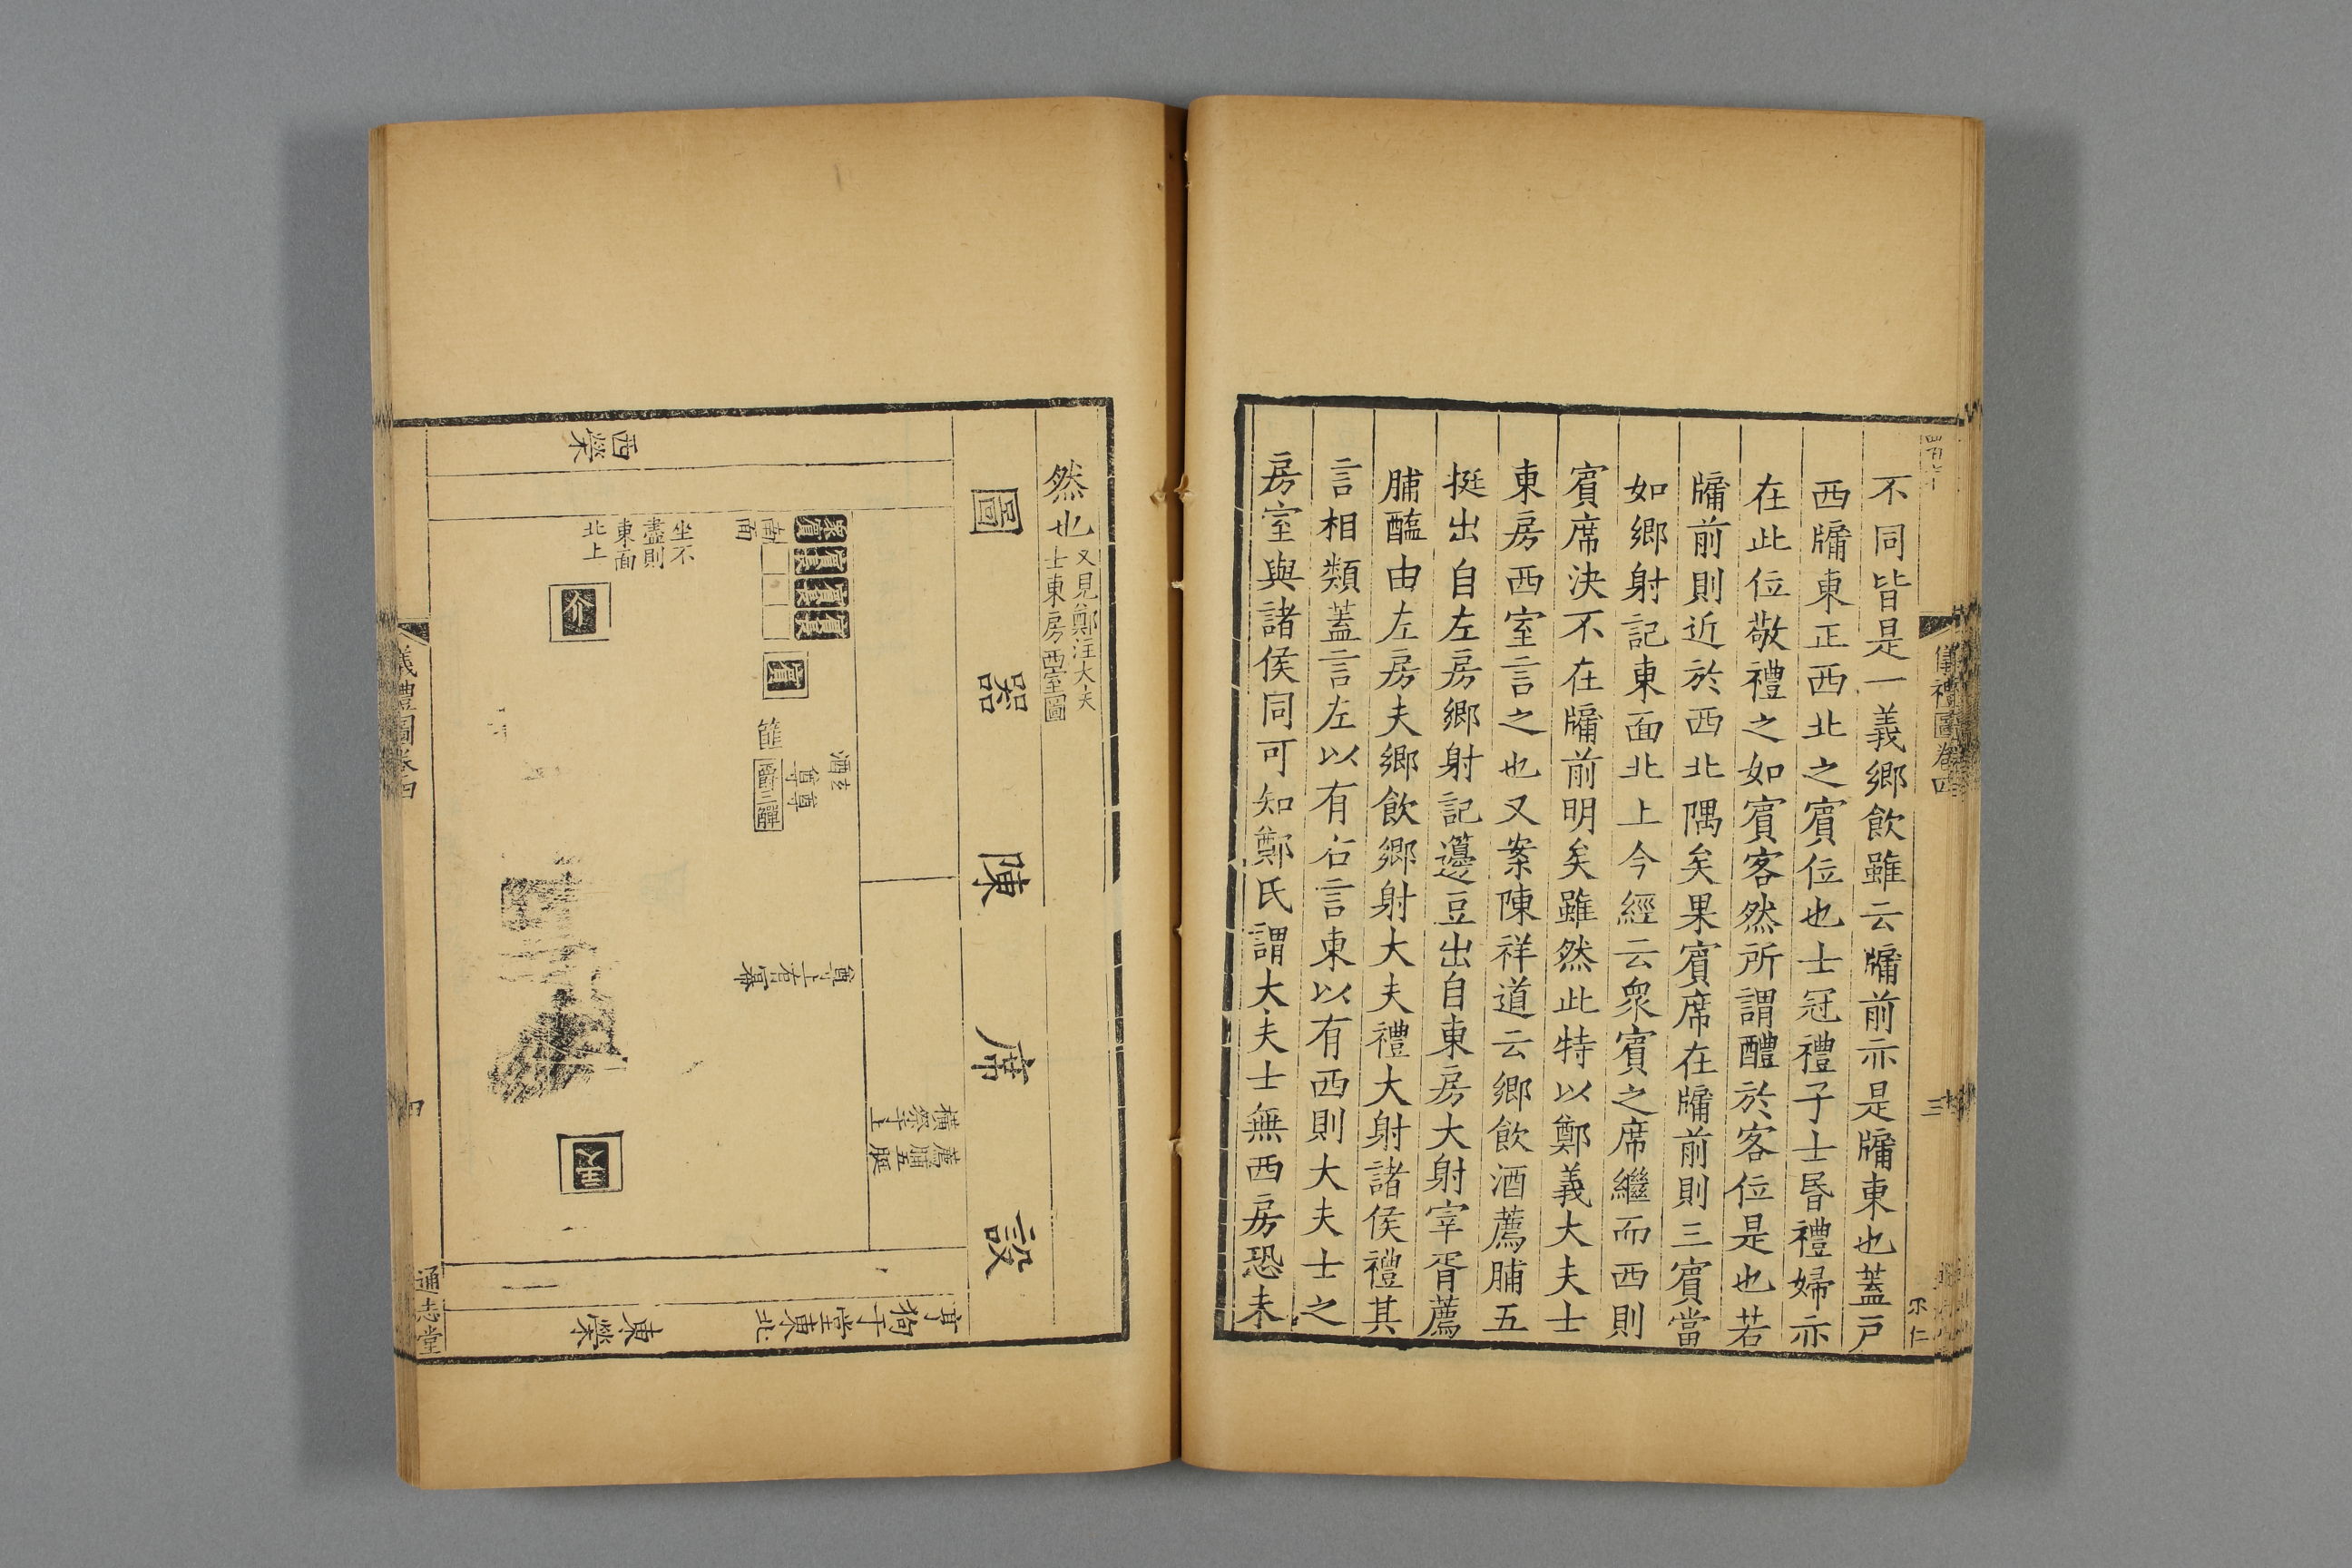 不同皆是一義鄉飲雖云牖前亦是牖東也蓋戶
西牖東正西北之賓位也士冠禮子士昏禮婦亦
在此位敬禮之如賓客然所謂醴於客位是也若
牖前則近於西北隅矣果賓席在牖前則三賓當
如鄉射記東面北上今經云衆賓之席繼而西則
賓席決不在牖前明矣雖然此特以鄭義大夫士
東房西室言之也又案陳祥道云鄉飲酒薦脯五
挺出自左房鄉射記籩豆出自東房大射宰胥薦
脯醢由左房夫鄉飲鄉射大夫禮大射諸侯禮其
言相類蓋言左以有右言東以有西則大夫士之
房室與諸侯同可知鄭氏謂大夫士無西房恐未
儀禮圖卷四
三
尒仁
然也
又見鄭注大夫
士東房西室圖
圖器陳席設
薦脯五脡
橫祭于上
亨狗于堂東北
尊上右冪
玄酒
尊
篚
賓
南面
坐不
盡則
東面
北上
介
西榮
東榮
儀禮圖卷四
四
通志堂